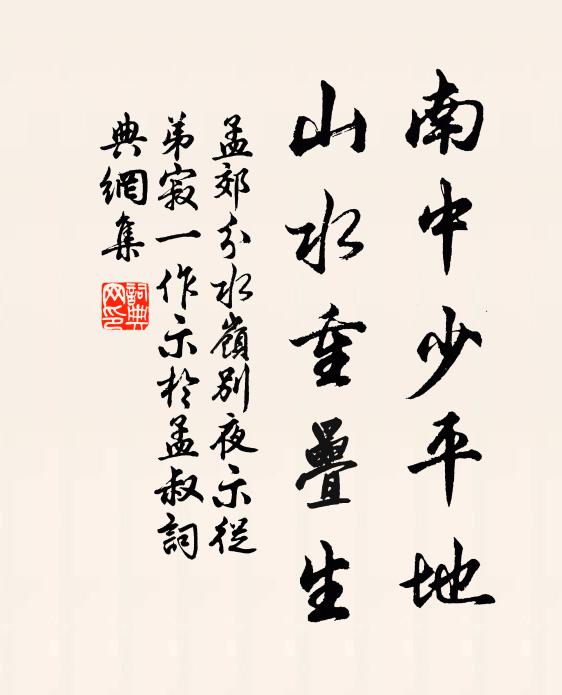 南中少平地
山水重疊生
孟郊分水嶺別夜示從
弟寂一作示於孟叔詞
典網集
詞典网印